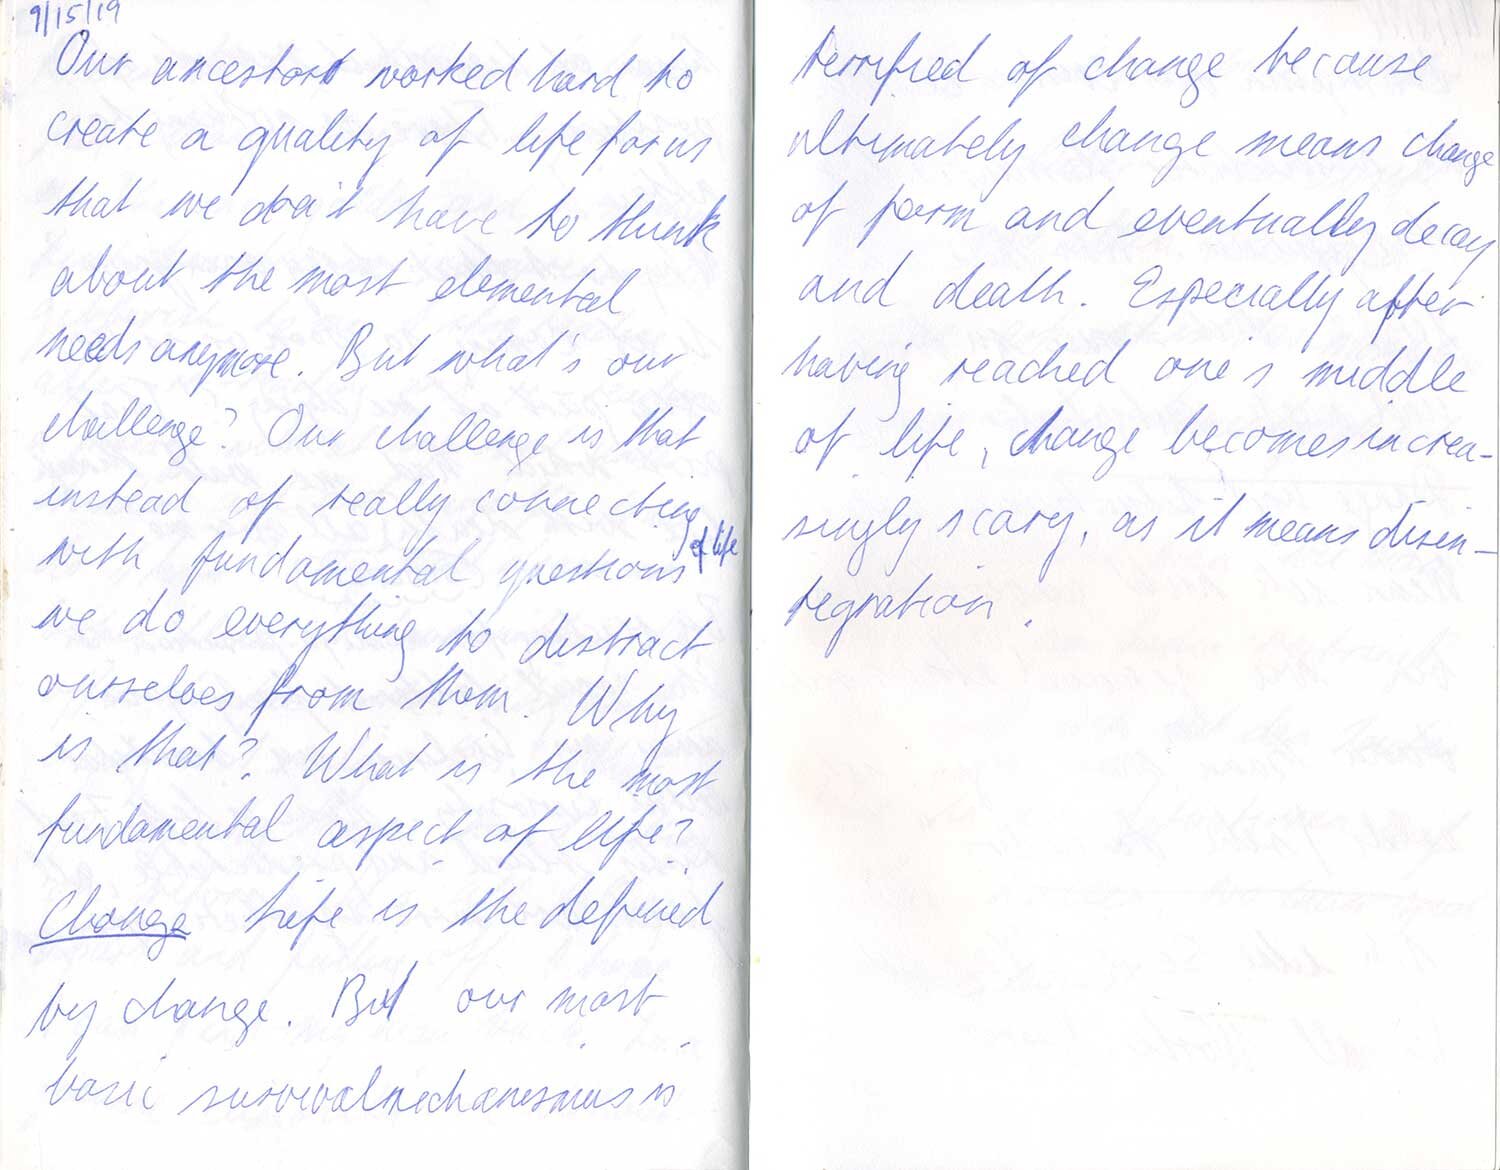 9/15/19
Our ancestors worked hard to
create a quality of life for us
that we don't have to think
about the most elemental
needs anymore. But what's our
challenge? Our challenge is that
instead of really connecting
with fundamental questions of life
we do everything to distract
ourselves from them. Why
is that? What is the most
fundamental aspect of life?
Change Life is the defined
by change. But our most
basic survival mechanismus is
terrified of change because
ultimately change means change
of form and eventually decay
and death. Especially after
having reached one's middle
of life, change becomes increa-
singly scary, as it means disin-
tegration.